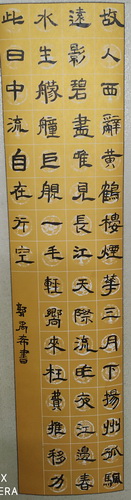 故人西辭黃鶴樓煙華三月下揚州孤颿
遠影碧盡唯見長江天際流昨夜江邊春
水生艨艟巨艦一毛輕嚮來枉費推移力
此日中流自在行空